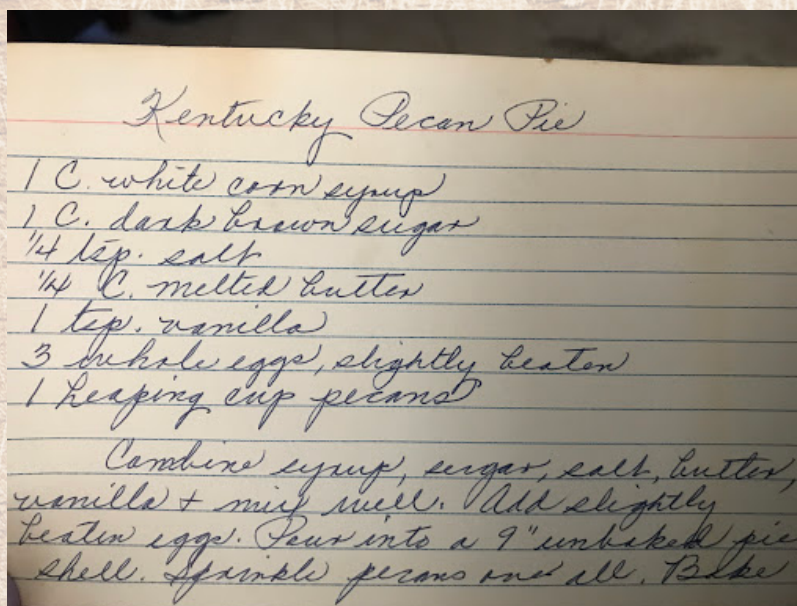 Kentucky Pecan Pie
1 C. white corn syrup
1 C. dark brown sugar
1/4 tsp. salt
1/4 C. melted butter
1 tsp. vanilla
3 whole eggs, slightly beaten
1 heaping cup pecans
Combine syrup, sugar, salt, butter,
vanilla + mix well. Add slightly
beaten eggs. Pour into a 9" unbaked pie
shell. Sprinkle pecans over all. Bake